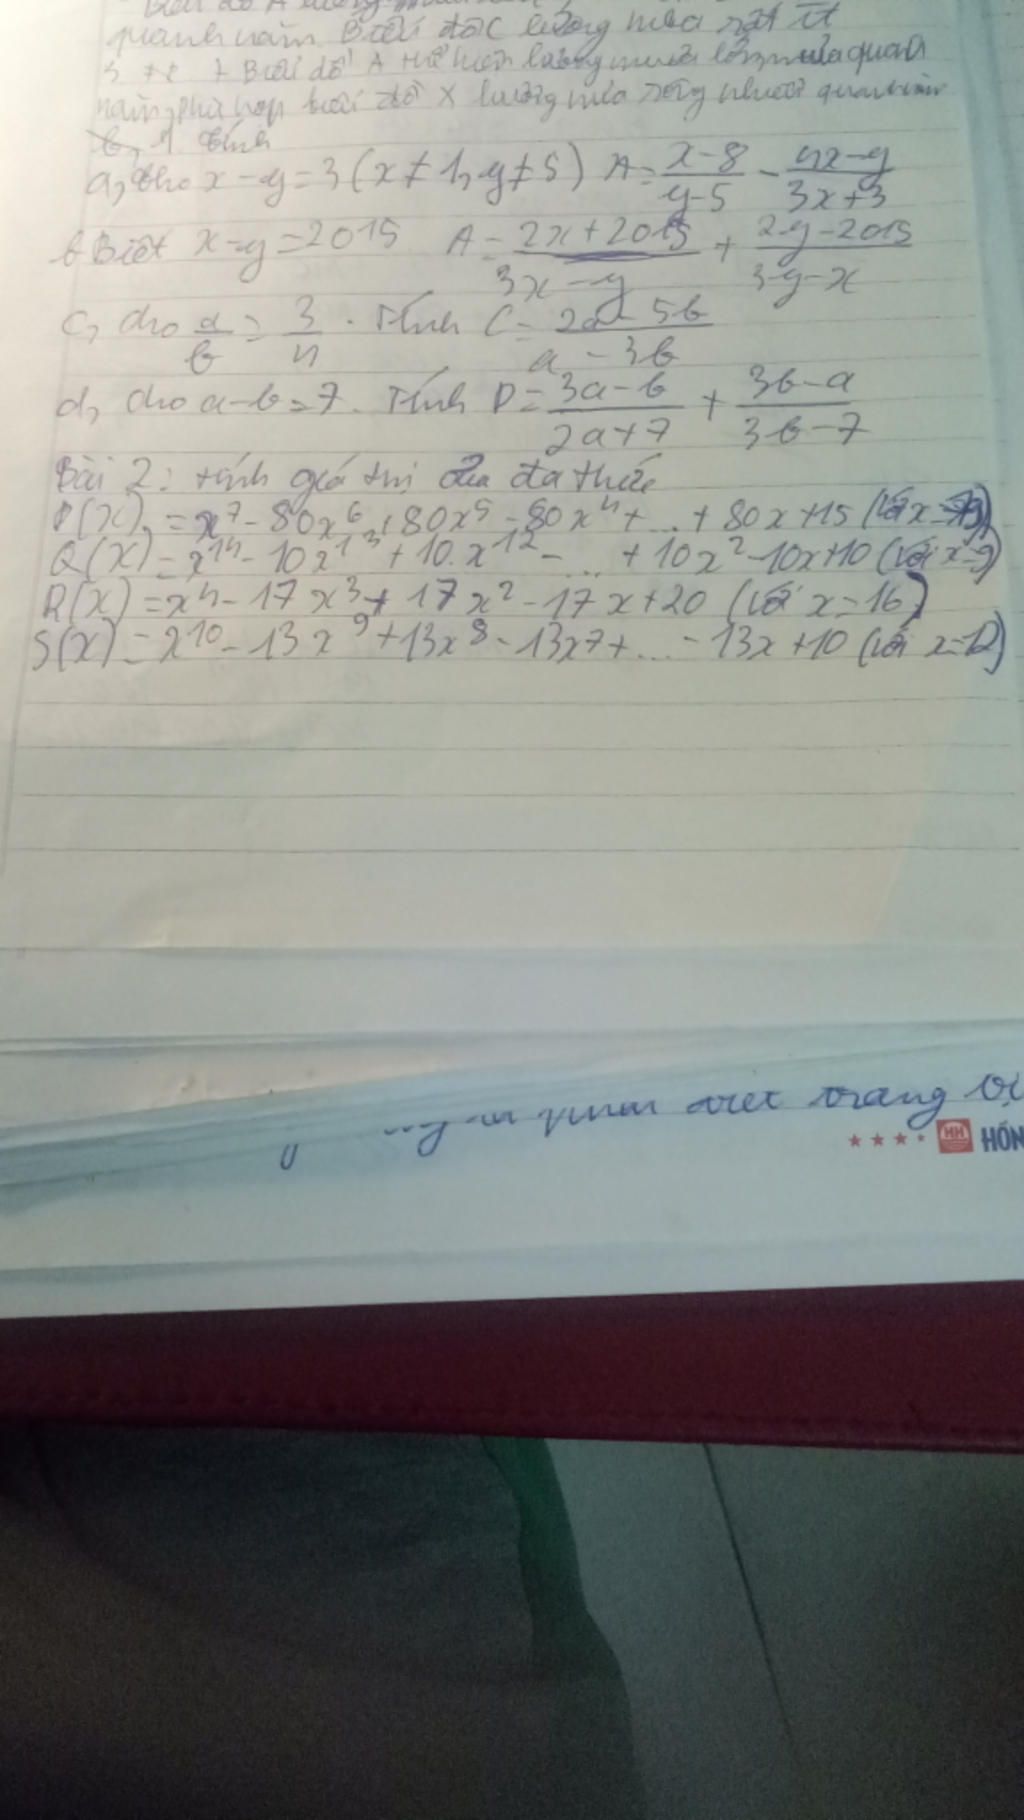 quanh năm. Biểu đồ C lượng mưa rất ít
+ Biểu đồ A thể hiện lượng mưa lớn mưa quanh
năm, phù hợp biểu đồ X lượng mưa
b, 1 tính
a, cho x - y = 3 (x ≠ 1, y ≠ 5) A = \frac{x-8}{y-5} - \frac{4x-y}{3x+3}
b Biết x - y = 2015 A = \frac{2x+2015}{3x-y} + \frac{2y-2015}{3y-x}
c, cho \frac{a}{b} = \frac{3}{4}. Tính C = \frac{2a-5b}{a-3b}
d, cho a-b=7. Tính D = \frac{3a-b}{2a+7} + \frac{3b-a}{3b-7}
Bài 2: tính giá trị của đa thức
P(x) = x^7 - 80x^6 + 80x^5 - 80x^4 + ... + 80x + 15 (với x = 79)
Q(x) = x^14 - 10x^13 + 10.x^12 - ... + 10x^2 - 10x + 10 (với x = 9)
R(x) = x^4 - 17x^3 + 17x^2 - 17x + 20 (với x = 16)
S(x) = x^10 - 13x^9 + 13x^8 - 13x^7 + ... - 13x + 10 (với x = 12)
viet trang
HH HỒN